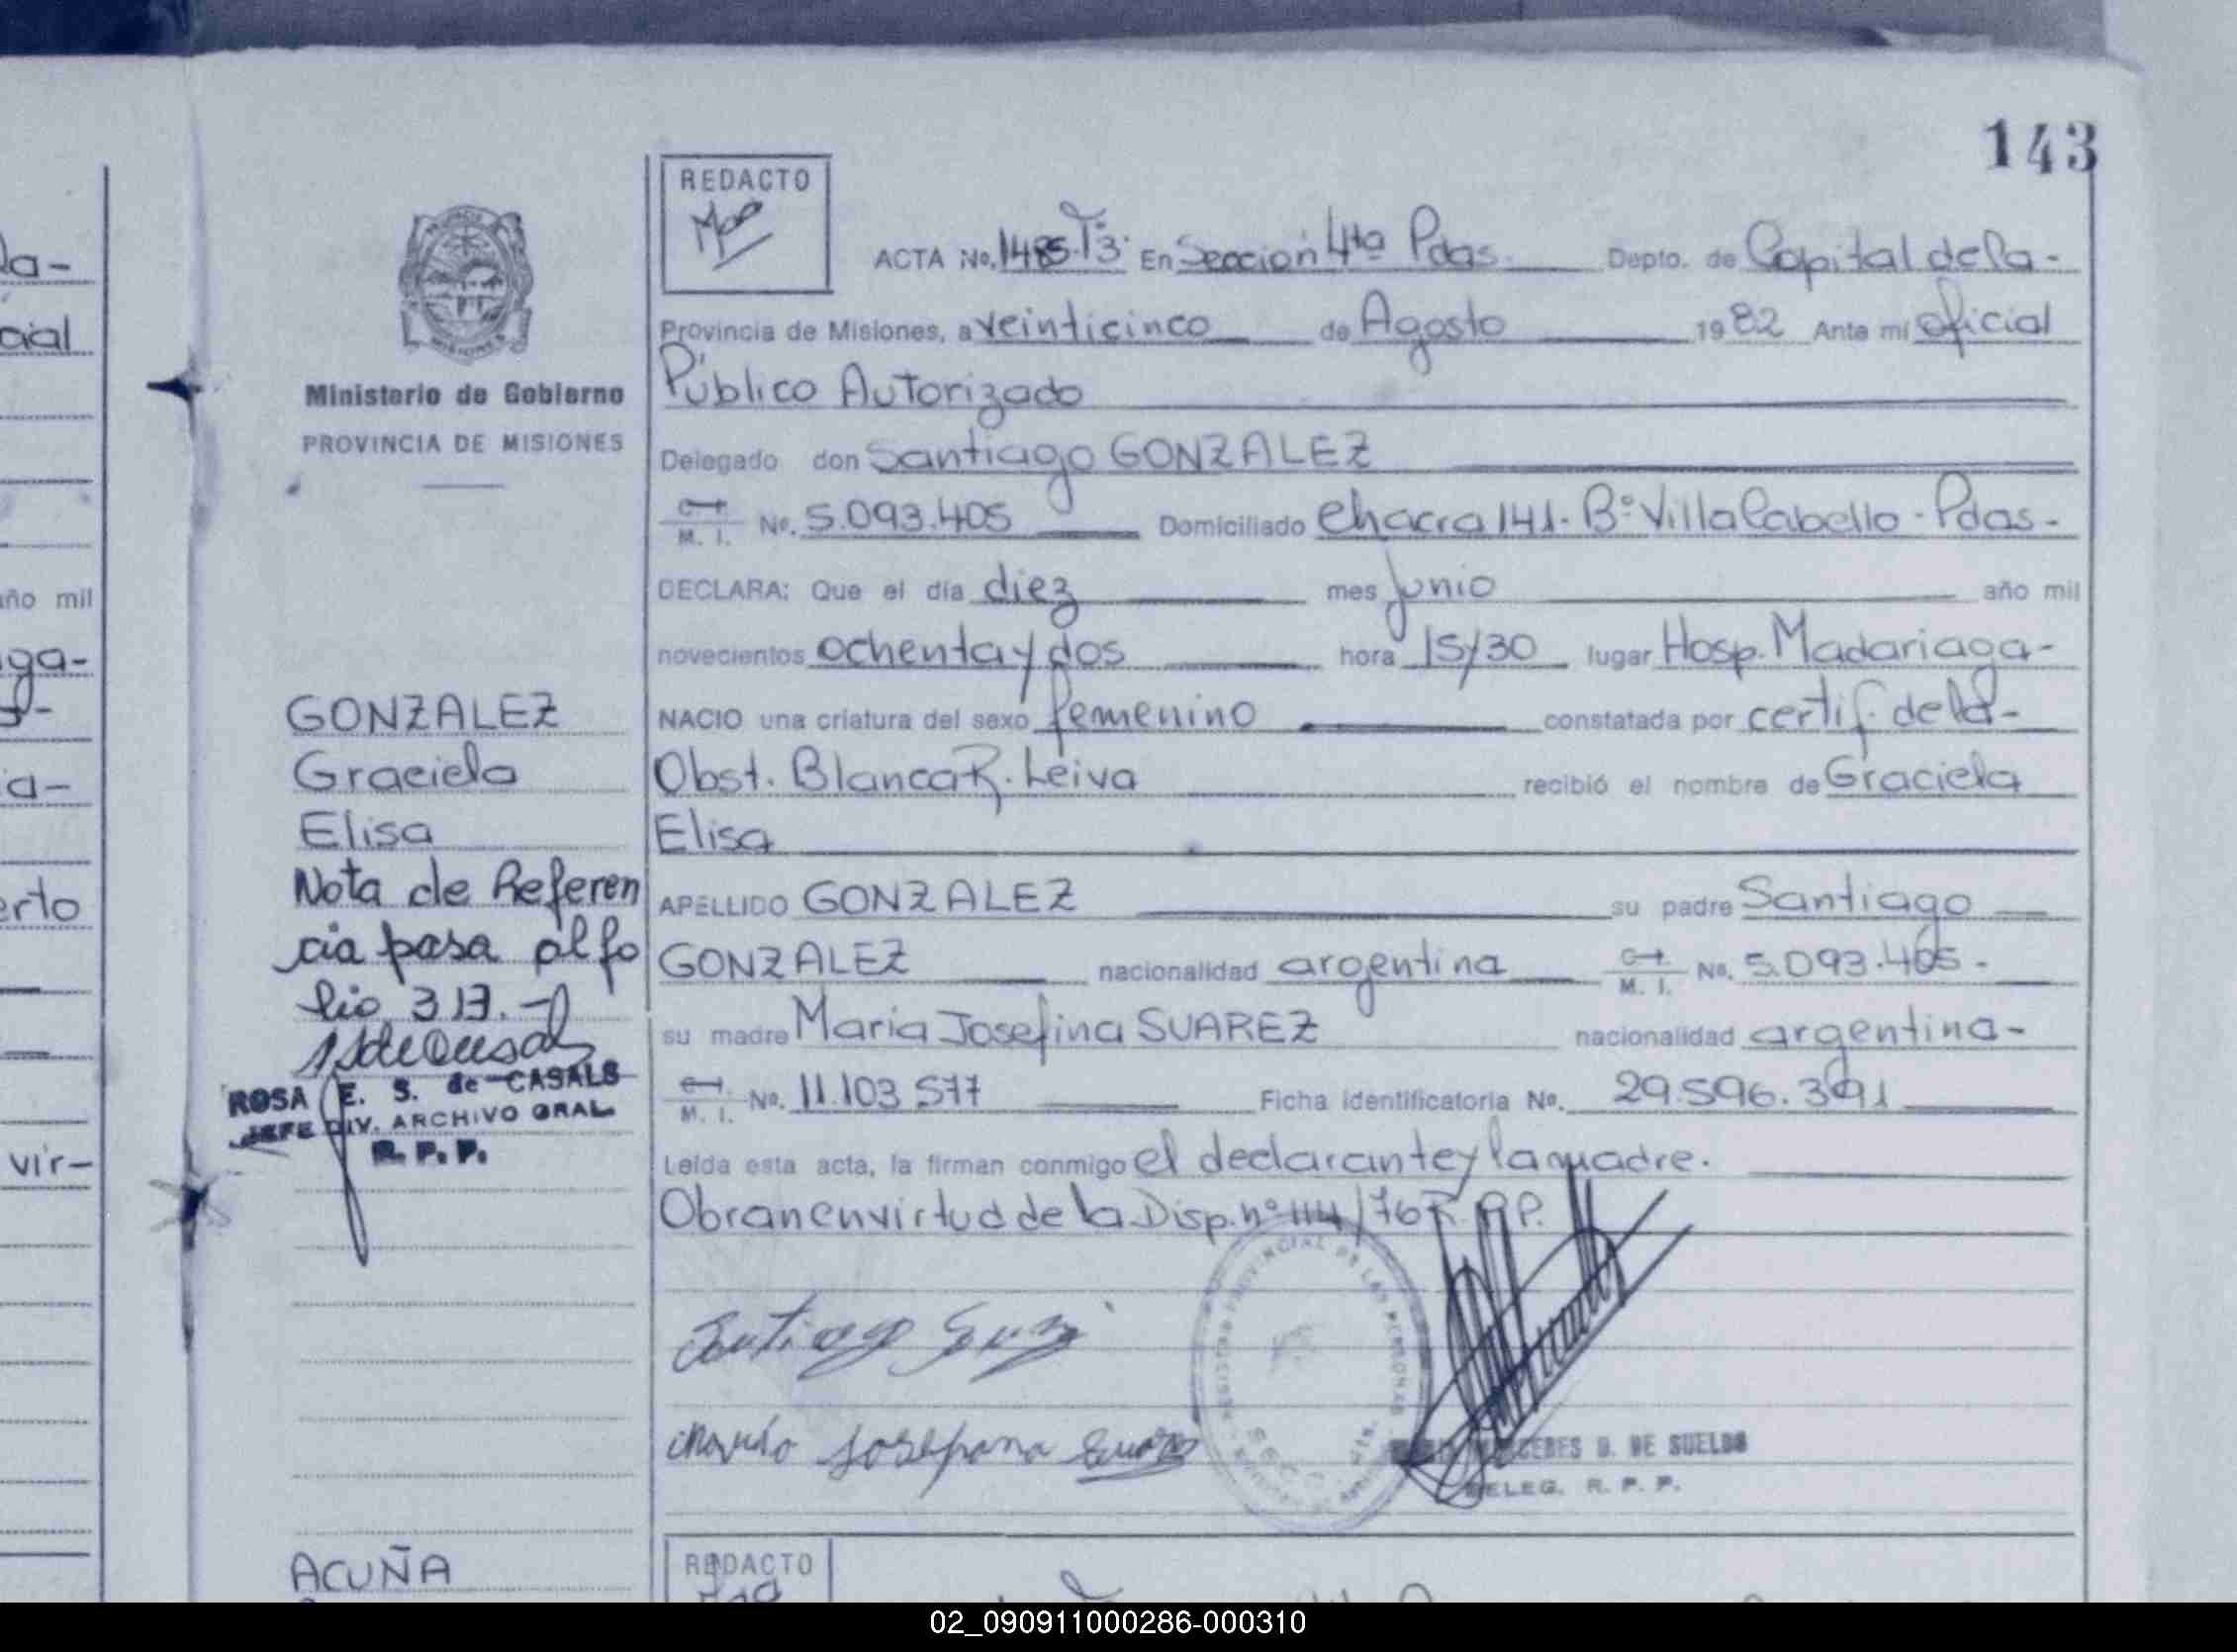 143
REDACTO
ACTA No. 1485 Tº3. En Sección 4ta Pdas. Depto. de Capital de la-
Provincia de Misiones, a veinticinco de Agosto 1982 Ante mí oficial
Público Autorizado
Delegado don Santiago GONZALEZ
M. I. No. 5.093.405 Domiciliado Chacra 141. Bº Villa Cabello - Pdas-
DECLARA: Que el día diez mes junio año mil
novecientos ochenta y dos hora 15y30 lugar Hosp. Madariaga-
NACIO una criatura del sexo femenino constatada por certif. de la-
Obst. Blanca R. Leiva recibió el nombre de Graciela
Elisa
APELLIDO GONZALEZ su padre Santiago
GONZALEZ nacionalidad argentina M. I. No. 5.093.405-
su madre Maria Josefina SUAREZ nacionalidad argentina-
M. I. No. 11.103 577 Ficha identificatoria No. 29.596.391
Leída esta acta, la firman conmigo el declarante y la madre.
Obran en virtud de la Disp. nº 114/76 R.P.P.
Santiago
Josefina
DE SUELDO
DELEG. R. P. P.
REGISTRO PROVINCIAL DE LAS PERSONAS
PROVINCIA
MISIONES
Ministerio de Gobierno
PROVINCIA DE MISIONES
GONZALEZ
Graciela
Elisa
Nota de Referen
cia pasa al fo
lio 313.-
ROSA E. S. de CASALS
JEFE DIV. ARCHIVO GRAL.
R. P. P.
ACUÑA
REDACTO
la-
cial
año mil
aga-
a-
erto
vir-
02_090911000286-000310